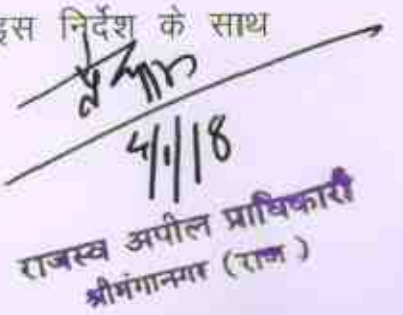 इस निर्देश के साथ
4/1/18
राजस्व अपील प्राधिकारी
श्रीगंगानगर (राज )